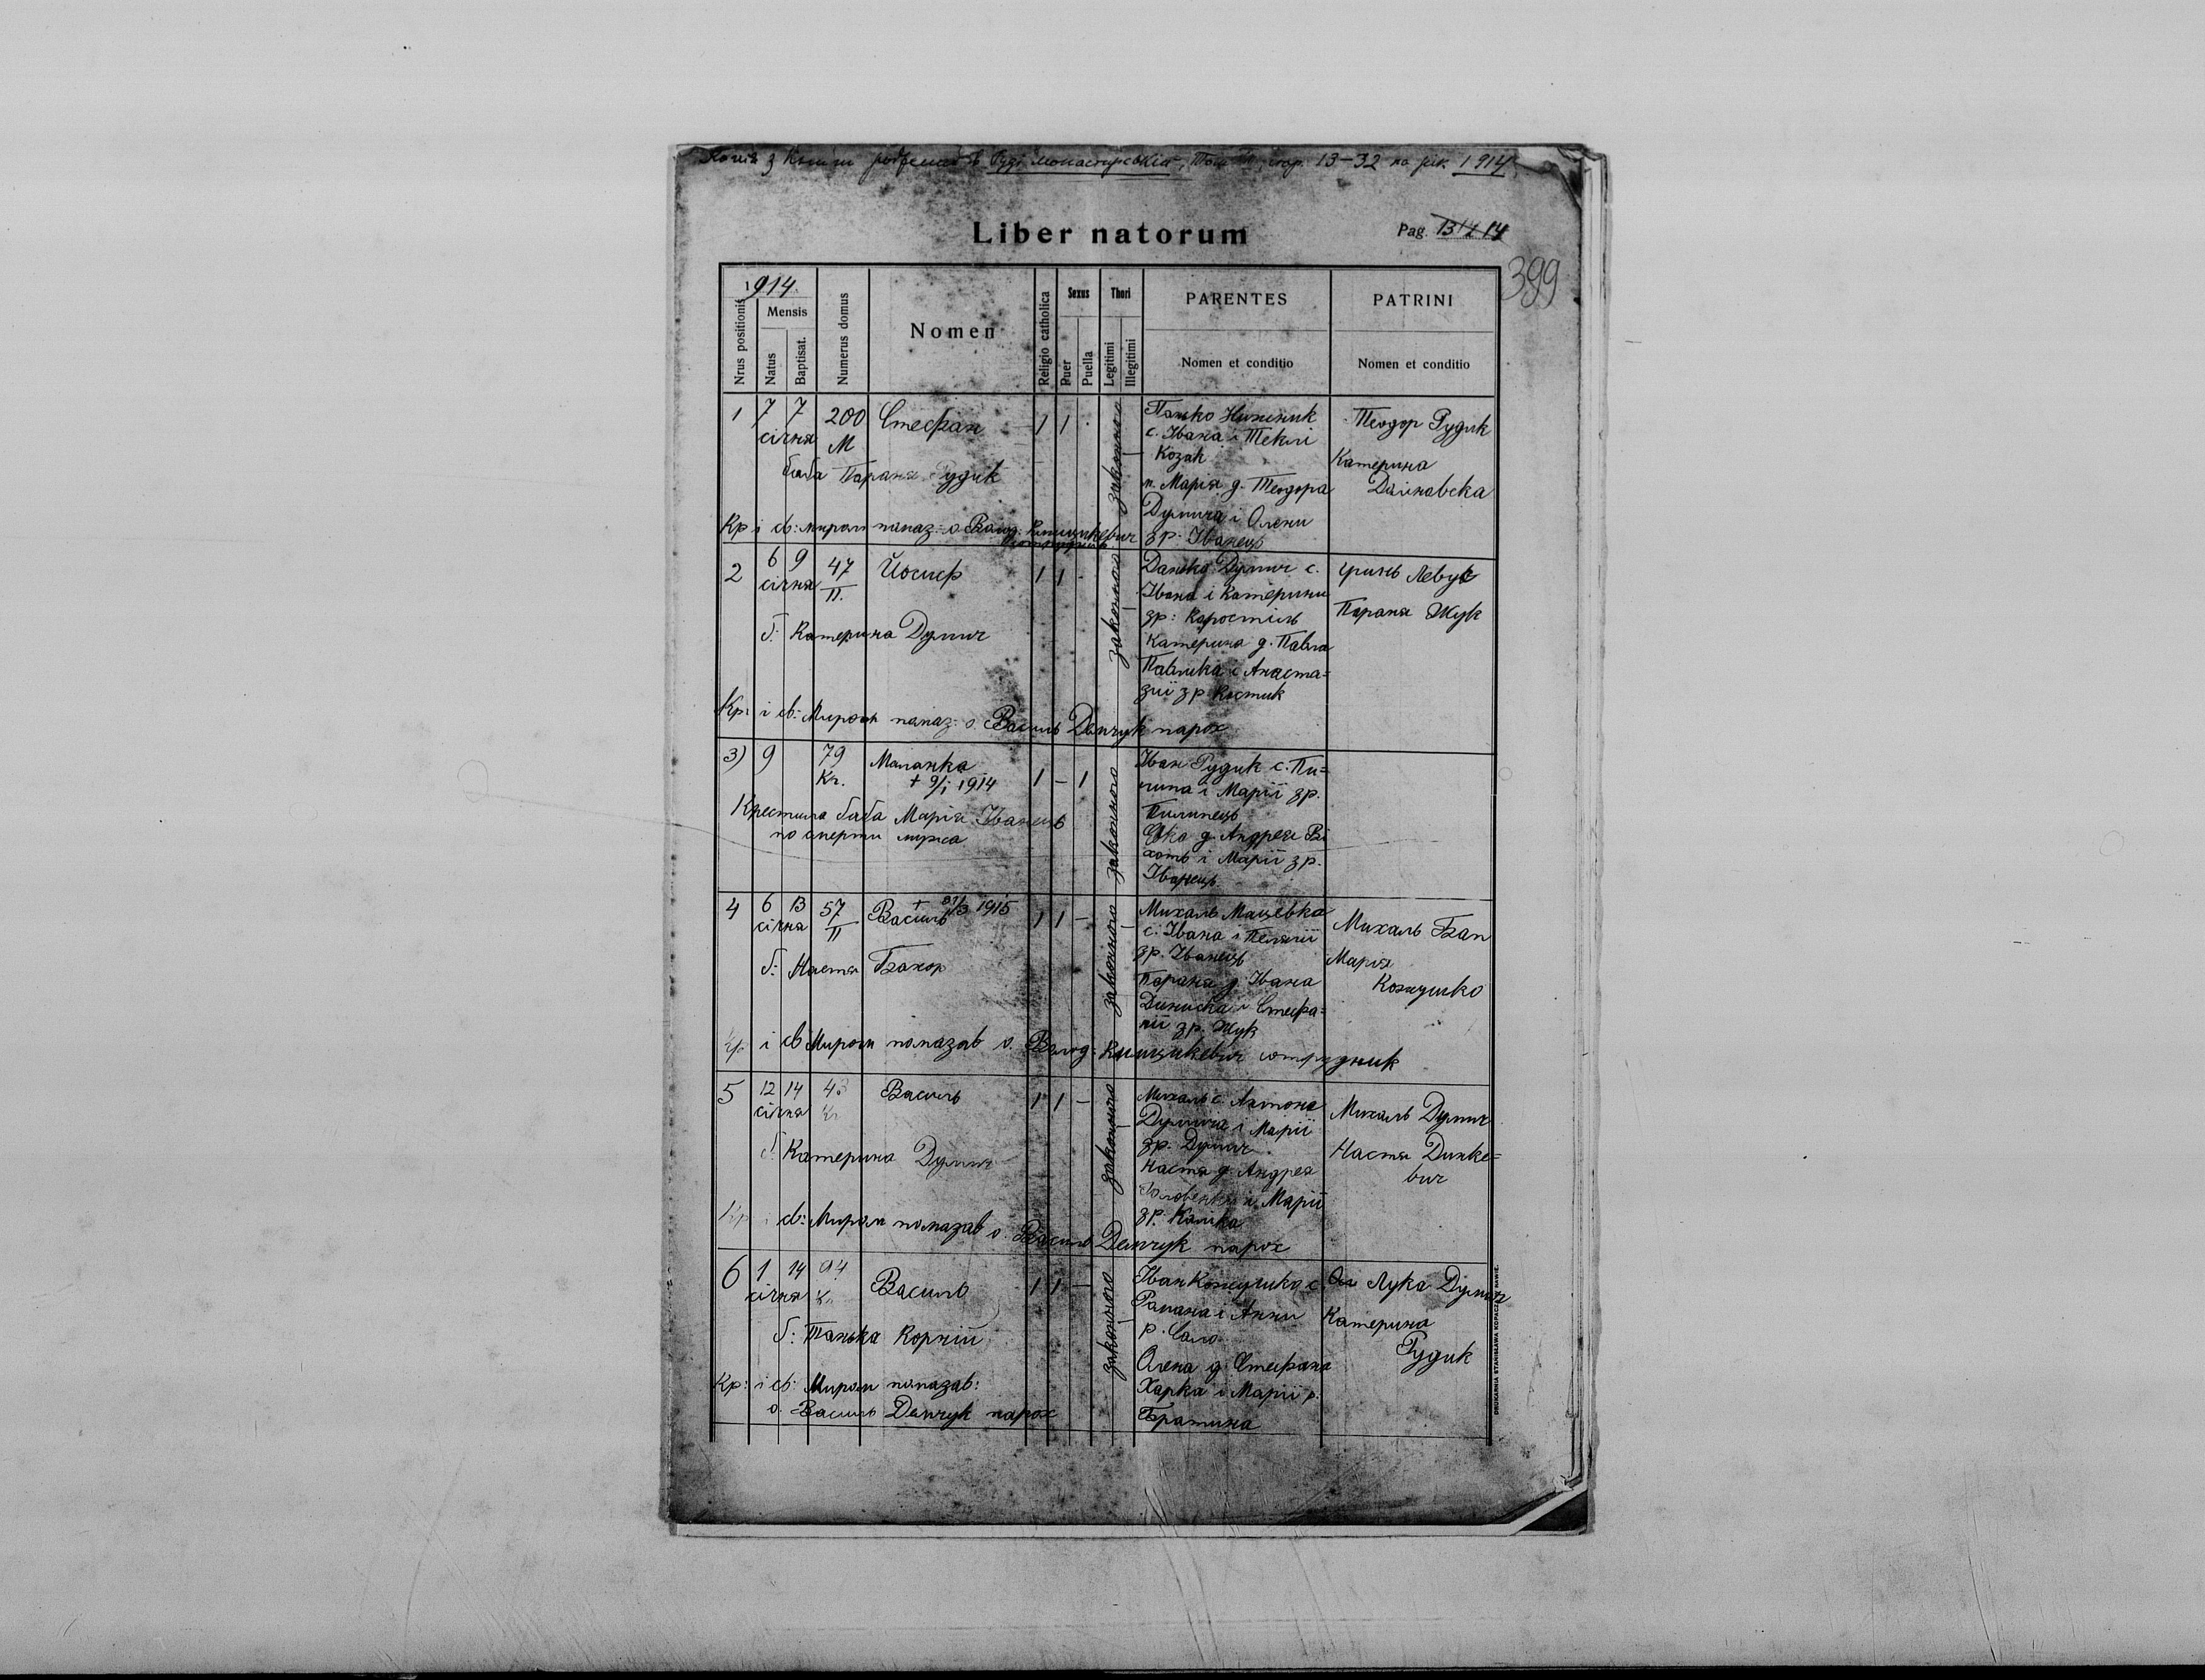 Копія з Книги роджених в Руді монастирській, Том стор. 13-32 на рік 1914
Liber natorum
Pag. 13 14
399
1914.
Nrus positionis
Mensis
Natus
Baptisat.
Numerus domus
Nomen
Religio catholica
Sexus
Puer
Puella
Thori
Legitimi
Illegitimi
PARENTES
Nomen et conditio
PATRINI
Nomen et conditio
1 7 7 200 Стефан 1 1 законного
січня М
баба Параня Рудик
Панько
с. Івана і Теклі
Козак
м. Марія д. Теодора
Думича і Олени
зр: Іванець
Теодор Рудик
Катерина
Кр і св: миром помаз: о Волод:
сотрудник
2 6 9 47 Йосиф 1 1 - законного
січня II.
б: Катерина Думич
Данько Думич с.
Івана і Катерини
зр: Коростіль
Катерина д. Павла
Павлика і Анаста=
зиї зр. Костик
Гринь Левус
Параня Жук
Кр: і св: Миром помаз: о. Василь Демчук парох
3) 9 79 Маланка 1 - 1 законного
Кг. + 9/I 1914
Крестила баба Марія Іванець
по смерти мужа
Іван Рудик с. Пи=
липа і Марії зр.
Пилипець
д. Андрея Ві
хоть і Марії зр.
Іванець
4 6 13 57 Василь + 31/3 1915 1 1 - законного
січня II
б: Настя Бахор
Михаль Мацевка
с. Івана і Пелягії
зр. Іванець
Параня д. Івана
Дениска і Стефа=
нії зр. Жук
Михаль Бап
Марія
Кожушко
Кр і св Миром помазав о. Волод: сотрудник
5 12 14 43 Василь 1 1 - законного
січня Кг
б. Катерина Думич
Михаль с. Антона
Думича і Марії
зр: Думич
Настя д. Андрея
і Марії
зр. Каліка
Михаль Думич
Настя Динке=
вич
Кр і св: Миром помазав о. Василь Демчук парох
6 1 14 94 Василь 1 1 - законного
січня Кг
б: Танька Корній
Іван Кожушко с.
Романа і Анни
р. Сало
Олена д. Стефана
Харка і Марії р.
Братина
Лука Думич
Катерина
Рудик
Кр: і св: Миром помазав:
о. Василь Демчук парох
DRUKARNIA STANISŁAWA KOPACZA W RAWIE.